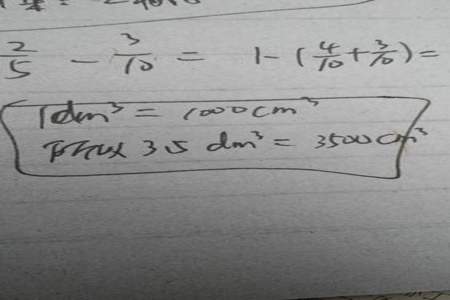 2/5 - 3/10 = 1-(4/10+3/10)=
1dm³ = 1000cm³
所以 3.5 dm³ = 3500cm³